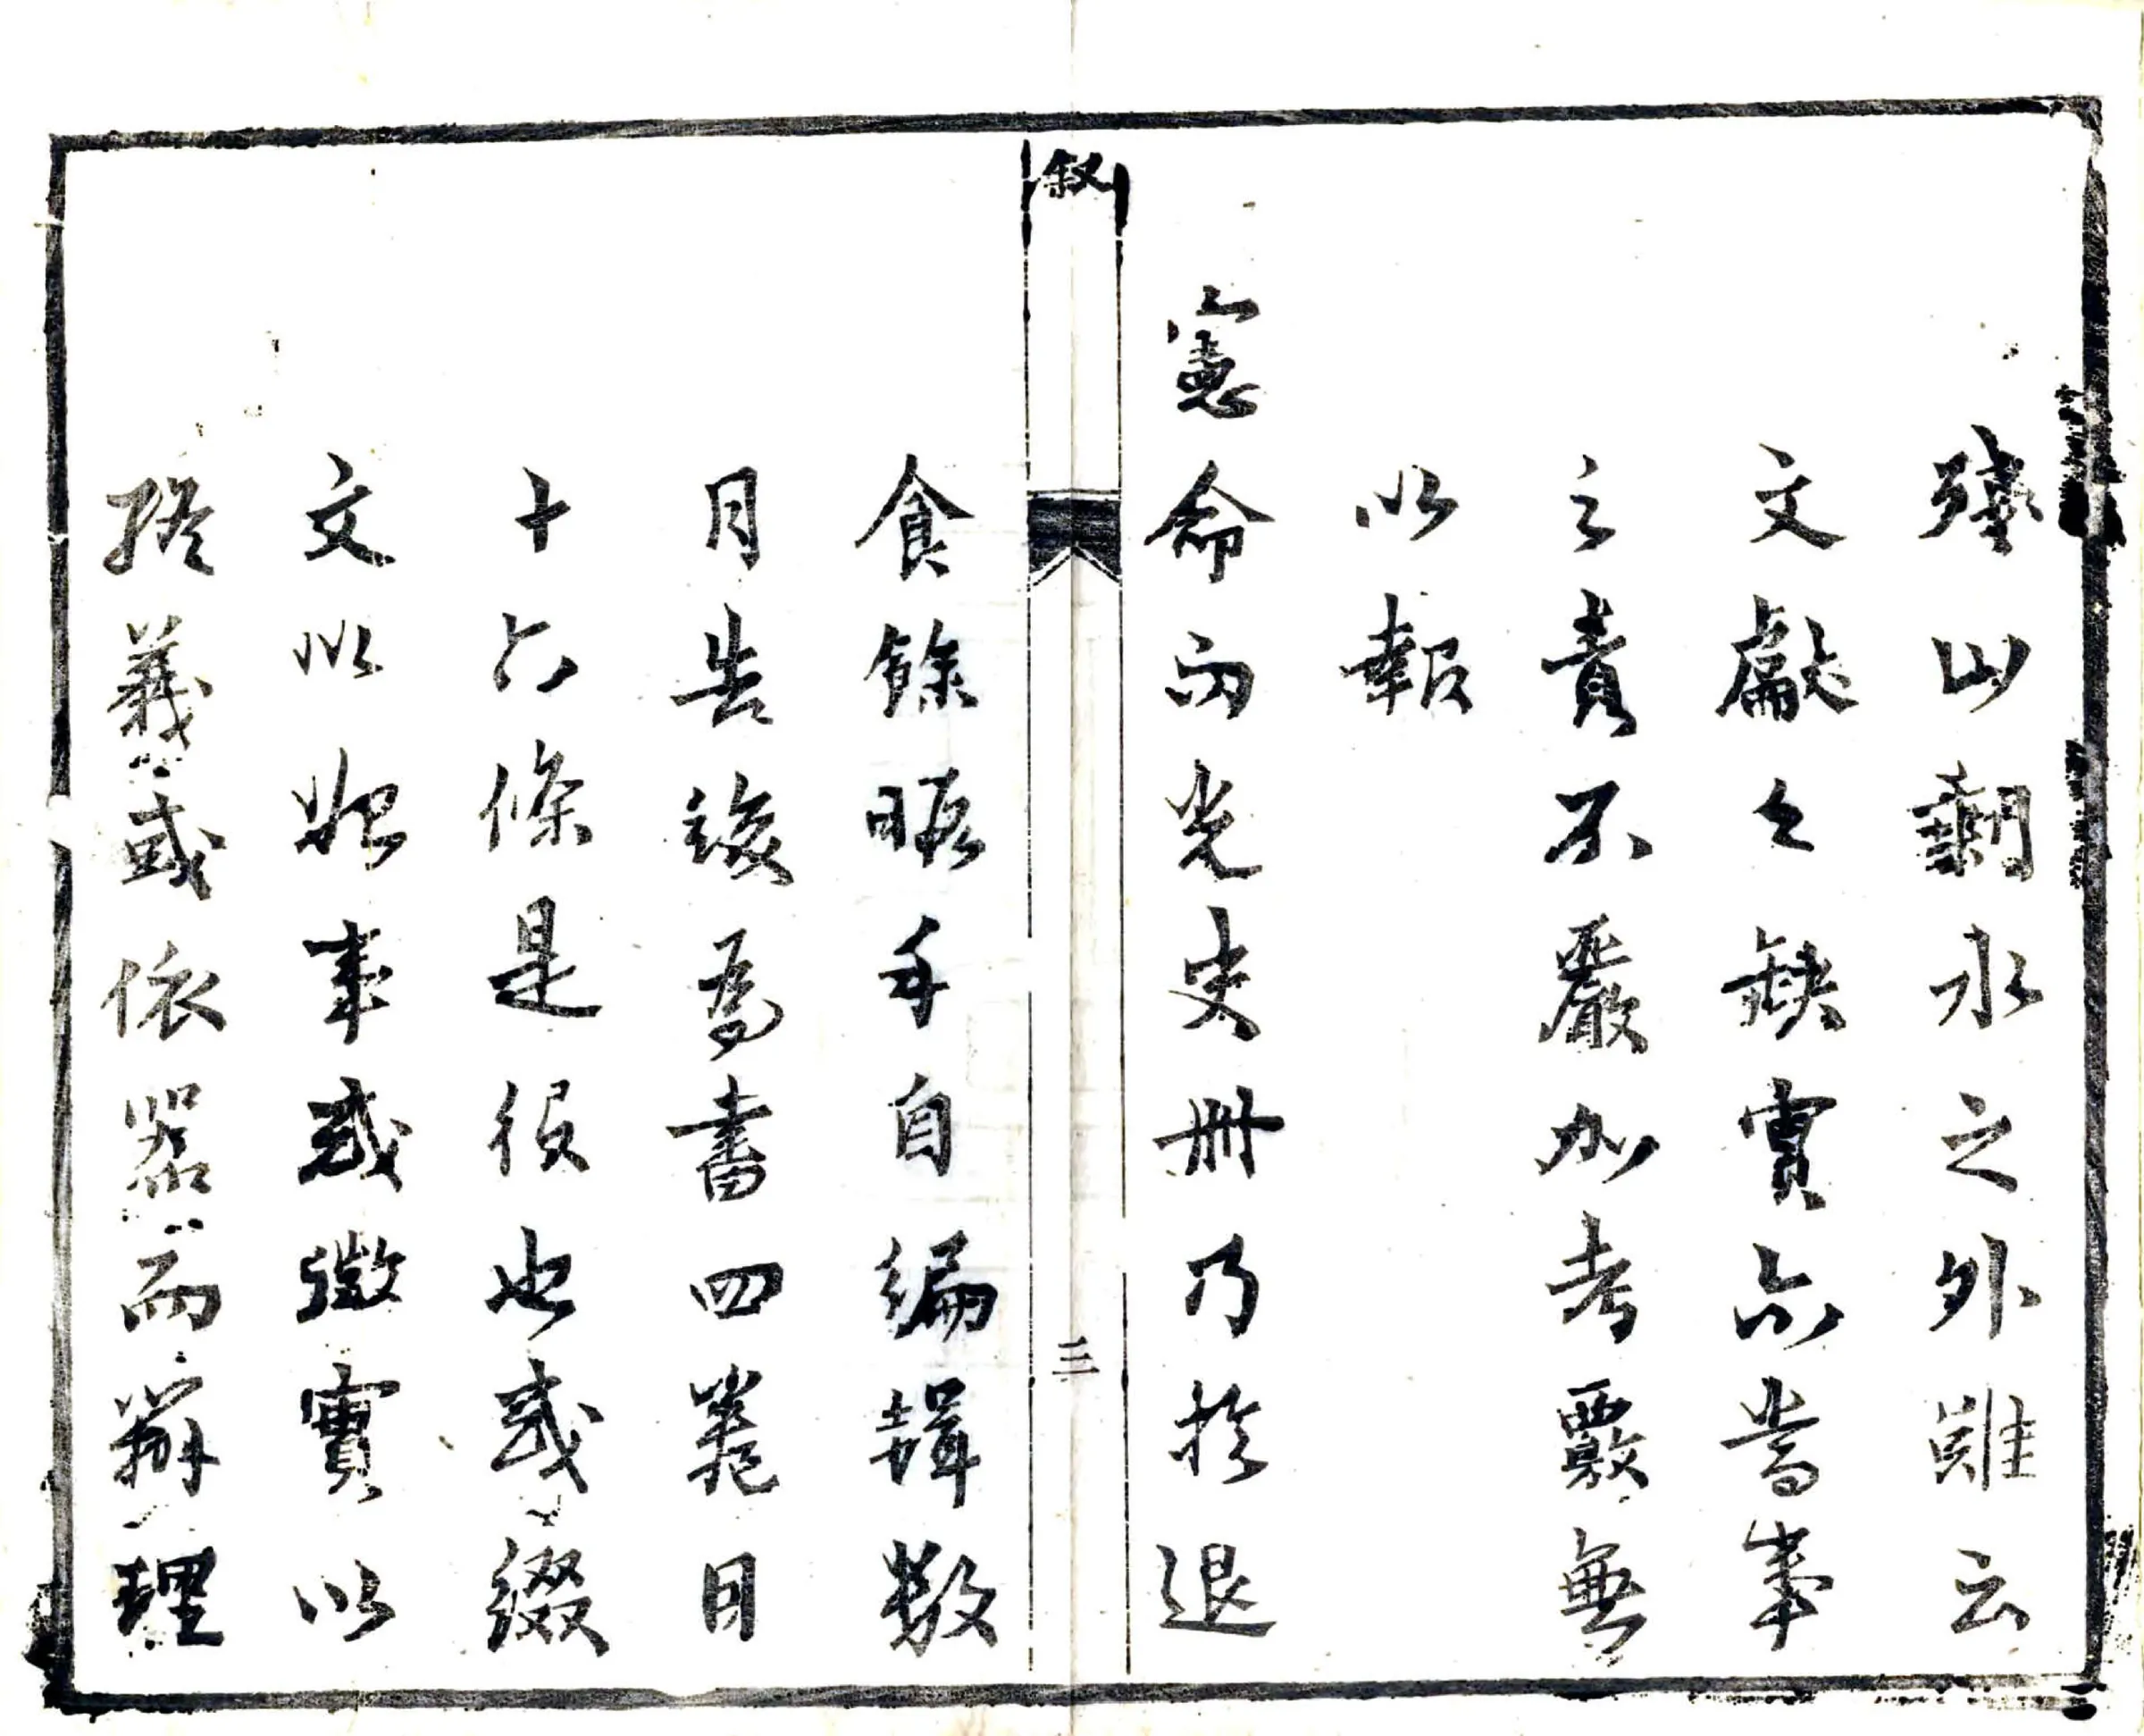 殘山剩水之外雖云
文獻之缺實亦當事
之責不嚴加考覈無
以報
憲命而光史冊乃於退
叙
三
食餘暇手自編輯數
月告竣為書四卷目
十六條是役也或綴
文以紀事或徵實以
義或依器而辨理